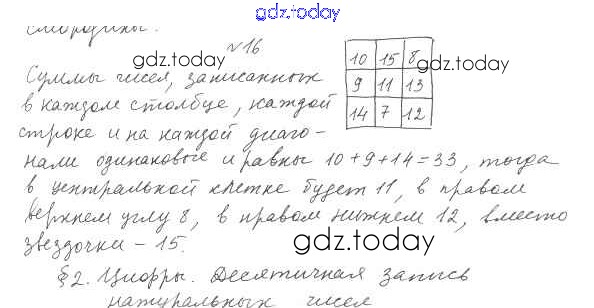 gdz.today
смородины.
№16
10 15 8
gdz.today
gdz.today
Суммы чисел, записанных
9 11 13
в каждом столбце, каждой
14 7 12
строке и на каждой диаго-
нали одинаковые и равны 10+9+14=33, тогда
в центральной клетке будет 11, в правом
верхнем углу 8, в правом нижнем 12, вместо
звездочки - 15.
gdz.today
§2. Цифры. Десятичная запись
натуральных чисел